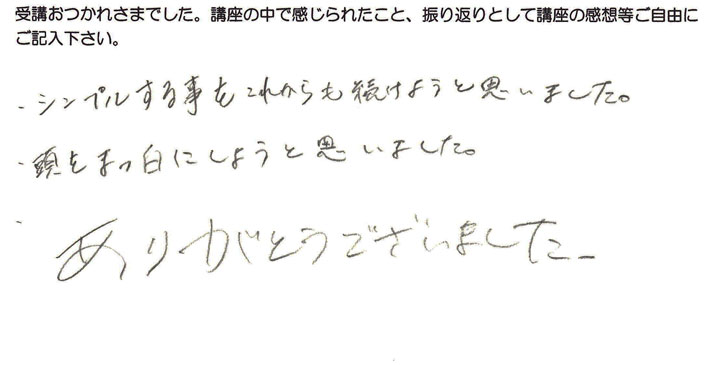 受講おつかれさまでした。講座の中で感じられたこと、振り返りとして講座の感想等ご自由に
ご記入下さい。
・シンプルする事をこれからも続けようと思いました。
・頭をまっ白にしようと思いました。
・
ありがとうございました